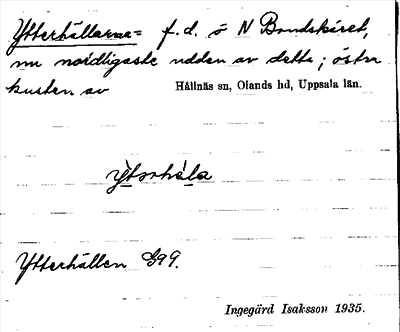 Ytterhällarna = f.d. ö N Bondskäret,
nu nordligaste udden av detta; östra
kusten av Hållnäs sn, Olands hd, Uppsala län.
ỳtərhá̀la
Ytterhällen G99.
Ingegärd Isaksson 1935.